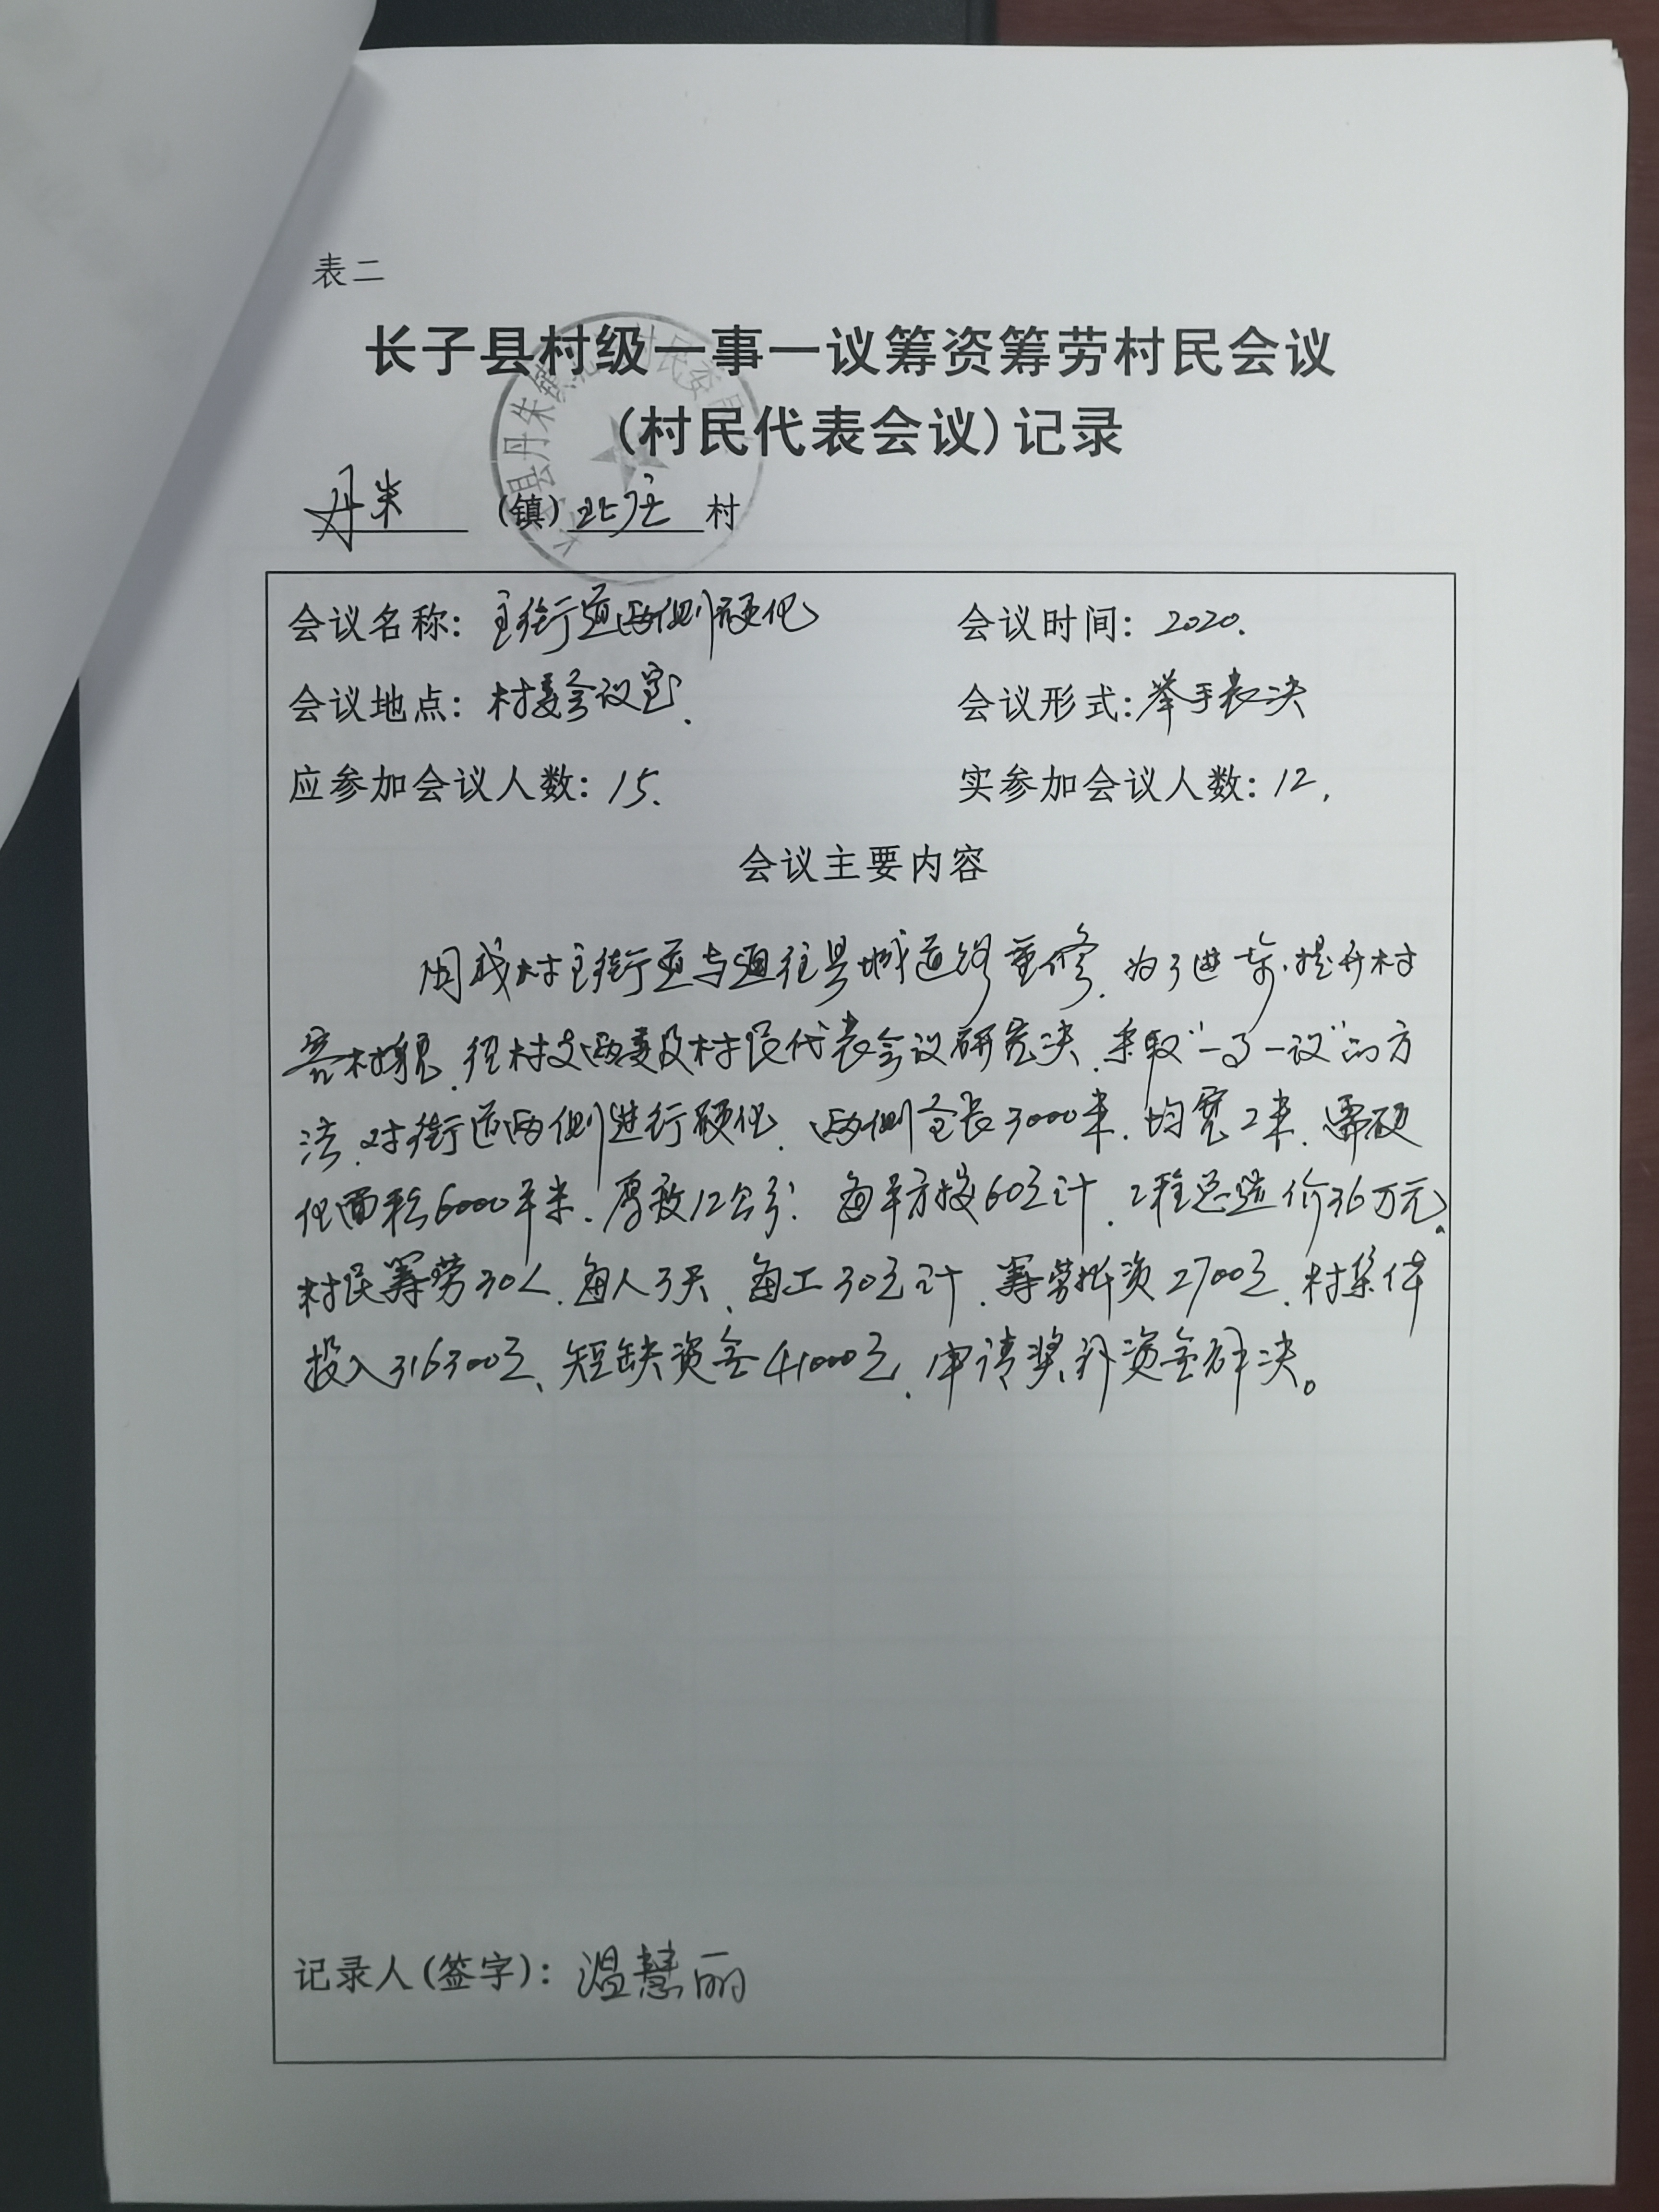 表二
长子县村级一事一议筹资筹劳村民会议
(村民代表会议)记录
丹朱 (镇) 北庄 村
会议名称: 主街道两侧硬化 会议时间: 2020.
会议地点: 村委会议室. 会议形式: 举手表决
应参加会议人数: 15. 实参加会议人数: 12.
会议主要内容
因我村主街道与通往县城道路重修, 为了进一步提升村
容村貌, 经村支两委及村民代表会议研究决, 采取"一事一议"的方
法, 对街道两侧进行硬化, 两侧全长3000米, 均宽2米, 需硬
化面积6000平米, 厚度12公分, 每平方按60元计, 工程总造价36万元。
村民筹劳30人, 每人3天, 每工30元计, 筹劳折资2700元, 村集体
投入316300元, 短缺资金41000元, 申请奖补资金解决。
记录人(签字): 温慧丽
县丹朱镇 村民委员